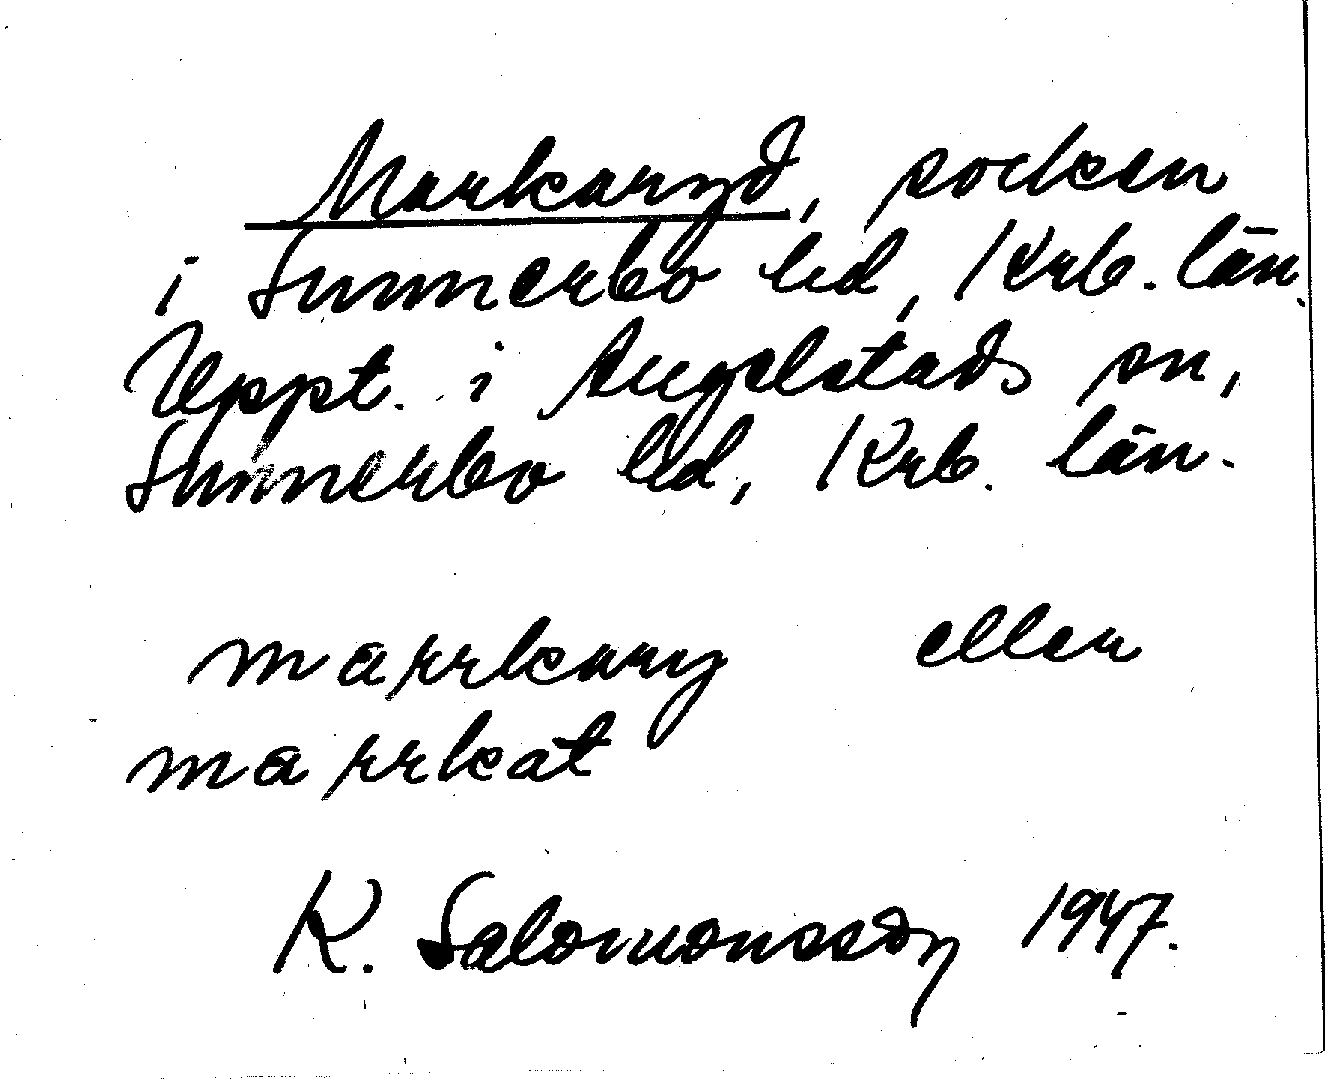 Markaryd, socken
i Sunnerbo hd, Krb. län.
Uppt. i Angelstads sn,
Sunnerbo hd, Krb. län.
markary eller
markat
K. Salomonsson 1947.